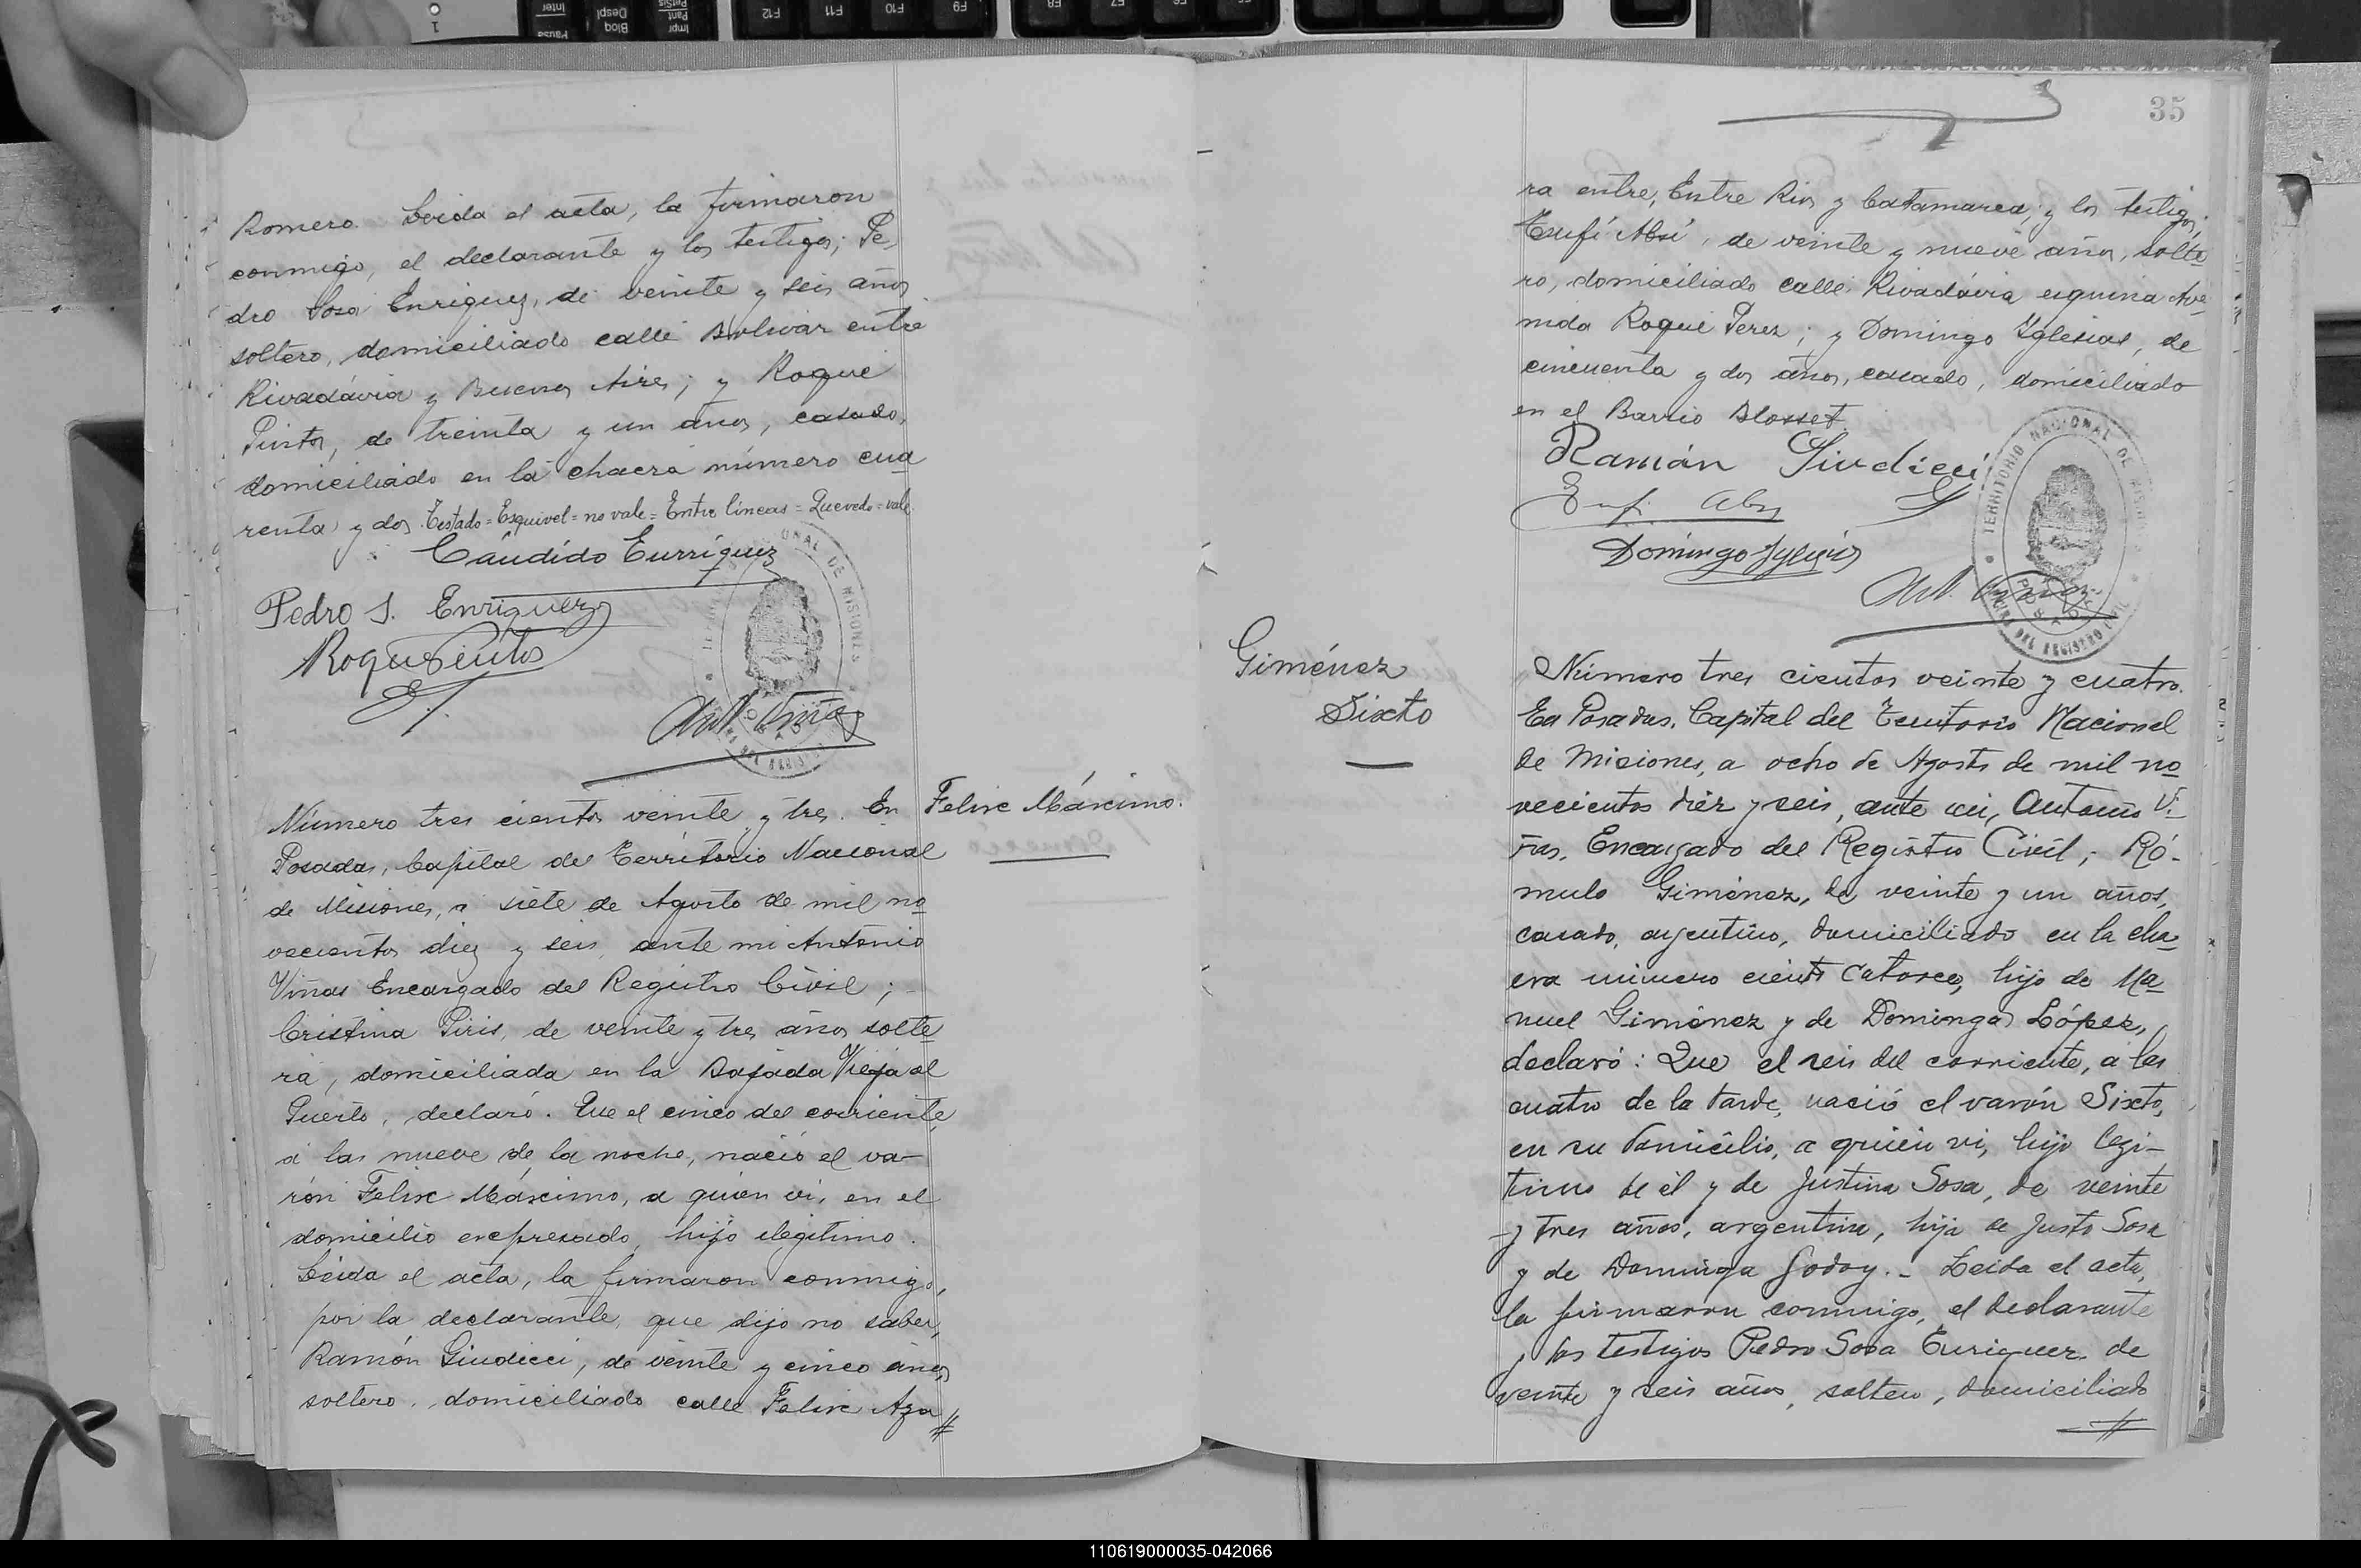 Romero. Leida el acta, la firmaron
conmigo, el declarante y los testigos; Pe-
dro Sosa Enriquez, de veinte y seis años
soltero, domiciliado calle Bolivar entre
Rivadávia y Buenos Aires; y Roque
Pintos, de treinta y un años, casado,
domiciliado en la chacra número cua
renta y dos. Testado = Esquivel = no vale = Entre lineas = Quevedo = vale
Cándido Enrríquez
Pedro S. Enriquez
Roque Pintos
Ant. Viñas
Número tres cientos veinte y tres. En
Posadas, Capital del Território Nacional
de Misiones, a siete de Agosto de mil no
vecientos diez y seis, ante mi Antonio
Viñas Encargado del Registro Civil; -
Cristina Piris, de veinte y tres años solte
ra, domiciliada en la Bajada Vieja al
Puerto, declaró. Que el cinco del corriente
á las nueve de la noche, nació el va-
rón Felix Máximo, a quien vi, en el
domicilio expresado, hijo ilegitimo.
Leida el acta, la firmaron conmigo,
por la declarante, que dijo no saber,
Ramón Giudicci, de veinte y cinco años
soltero, domiciliado calle Felix Aza
Felix Máximo.
35
ra entre, Entre Rios y Catamarca; y los testigos,
Eufi Absi, de veinte y nueve años, solte
ro, domiciliado calle Rivadávia esquina Ave
nida Roque Perez; y Domingo Yglesias, de
cincuenta y dos años, casado, domiciliado
en el Barrio Blosset.
Ramón Giudicci
Domingo Yglesias
Ant. Viñas
TERRITORIO NACIONAL DE MISIONES
Giménez
Sixto
Número tres cientos veinte y cuatro.
En Posadas, Capital del Territorio Nacional
de Misiones, a ocho de Agosto de mil no
vecientos diez y seis, ante mi, Antonio Vi
ñas, Encargado del Registro Civil; Ró-
mulo Giménez, de veinte y un años,
casado, argentino, domiciliado en la cha
cra número ciento catorce, hijo de Ma
nuel Giménez y de Dominga López,
declaró: Que el seis del corriente, a las
cuatro de la tarde, nació el varón Sixto,
en su domicilio, a quien vi, hijo legi-
timo de él y de Justina Sosa, de veinte
y tres años, argentina, hija de Justo Sosa
y de Dominga Godoy. - Leida el acta,
la firmaron conmigo, el declarante
y los testigos Pedro Sosa Enriquez, de
veinte y seis años, soltero, domiciliado
110619000035-042066